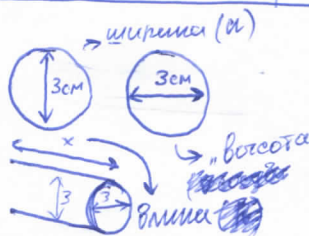 ширина (а)
3см 3см
x
„высота
3 3 длина